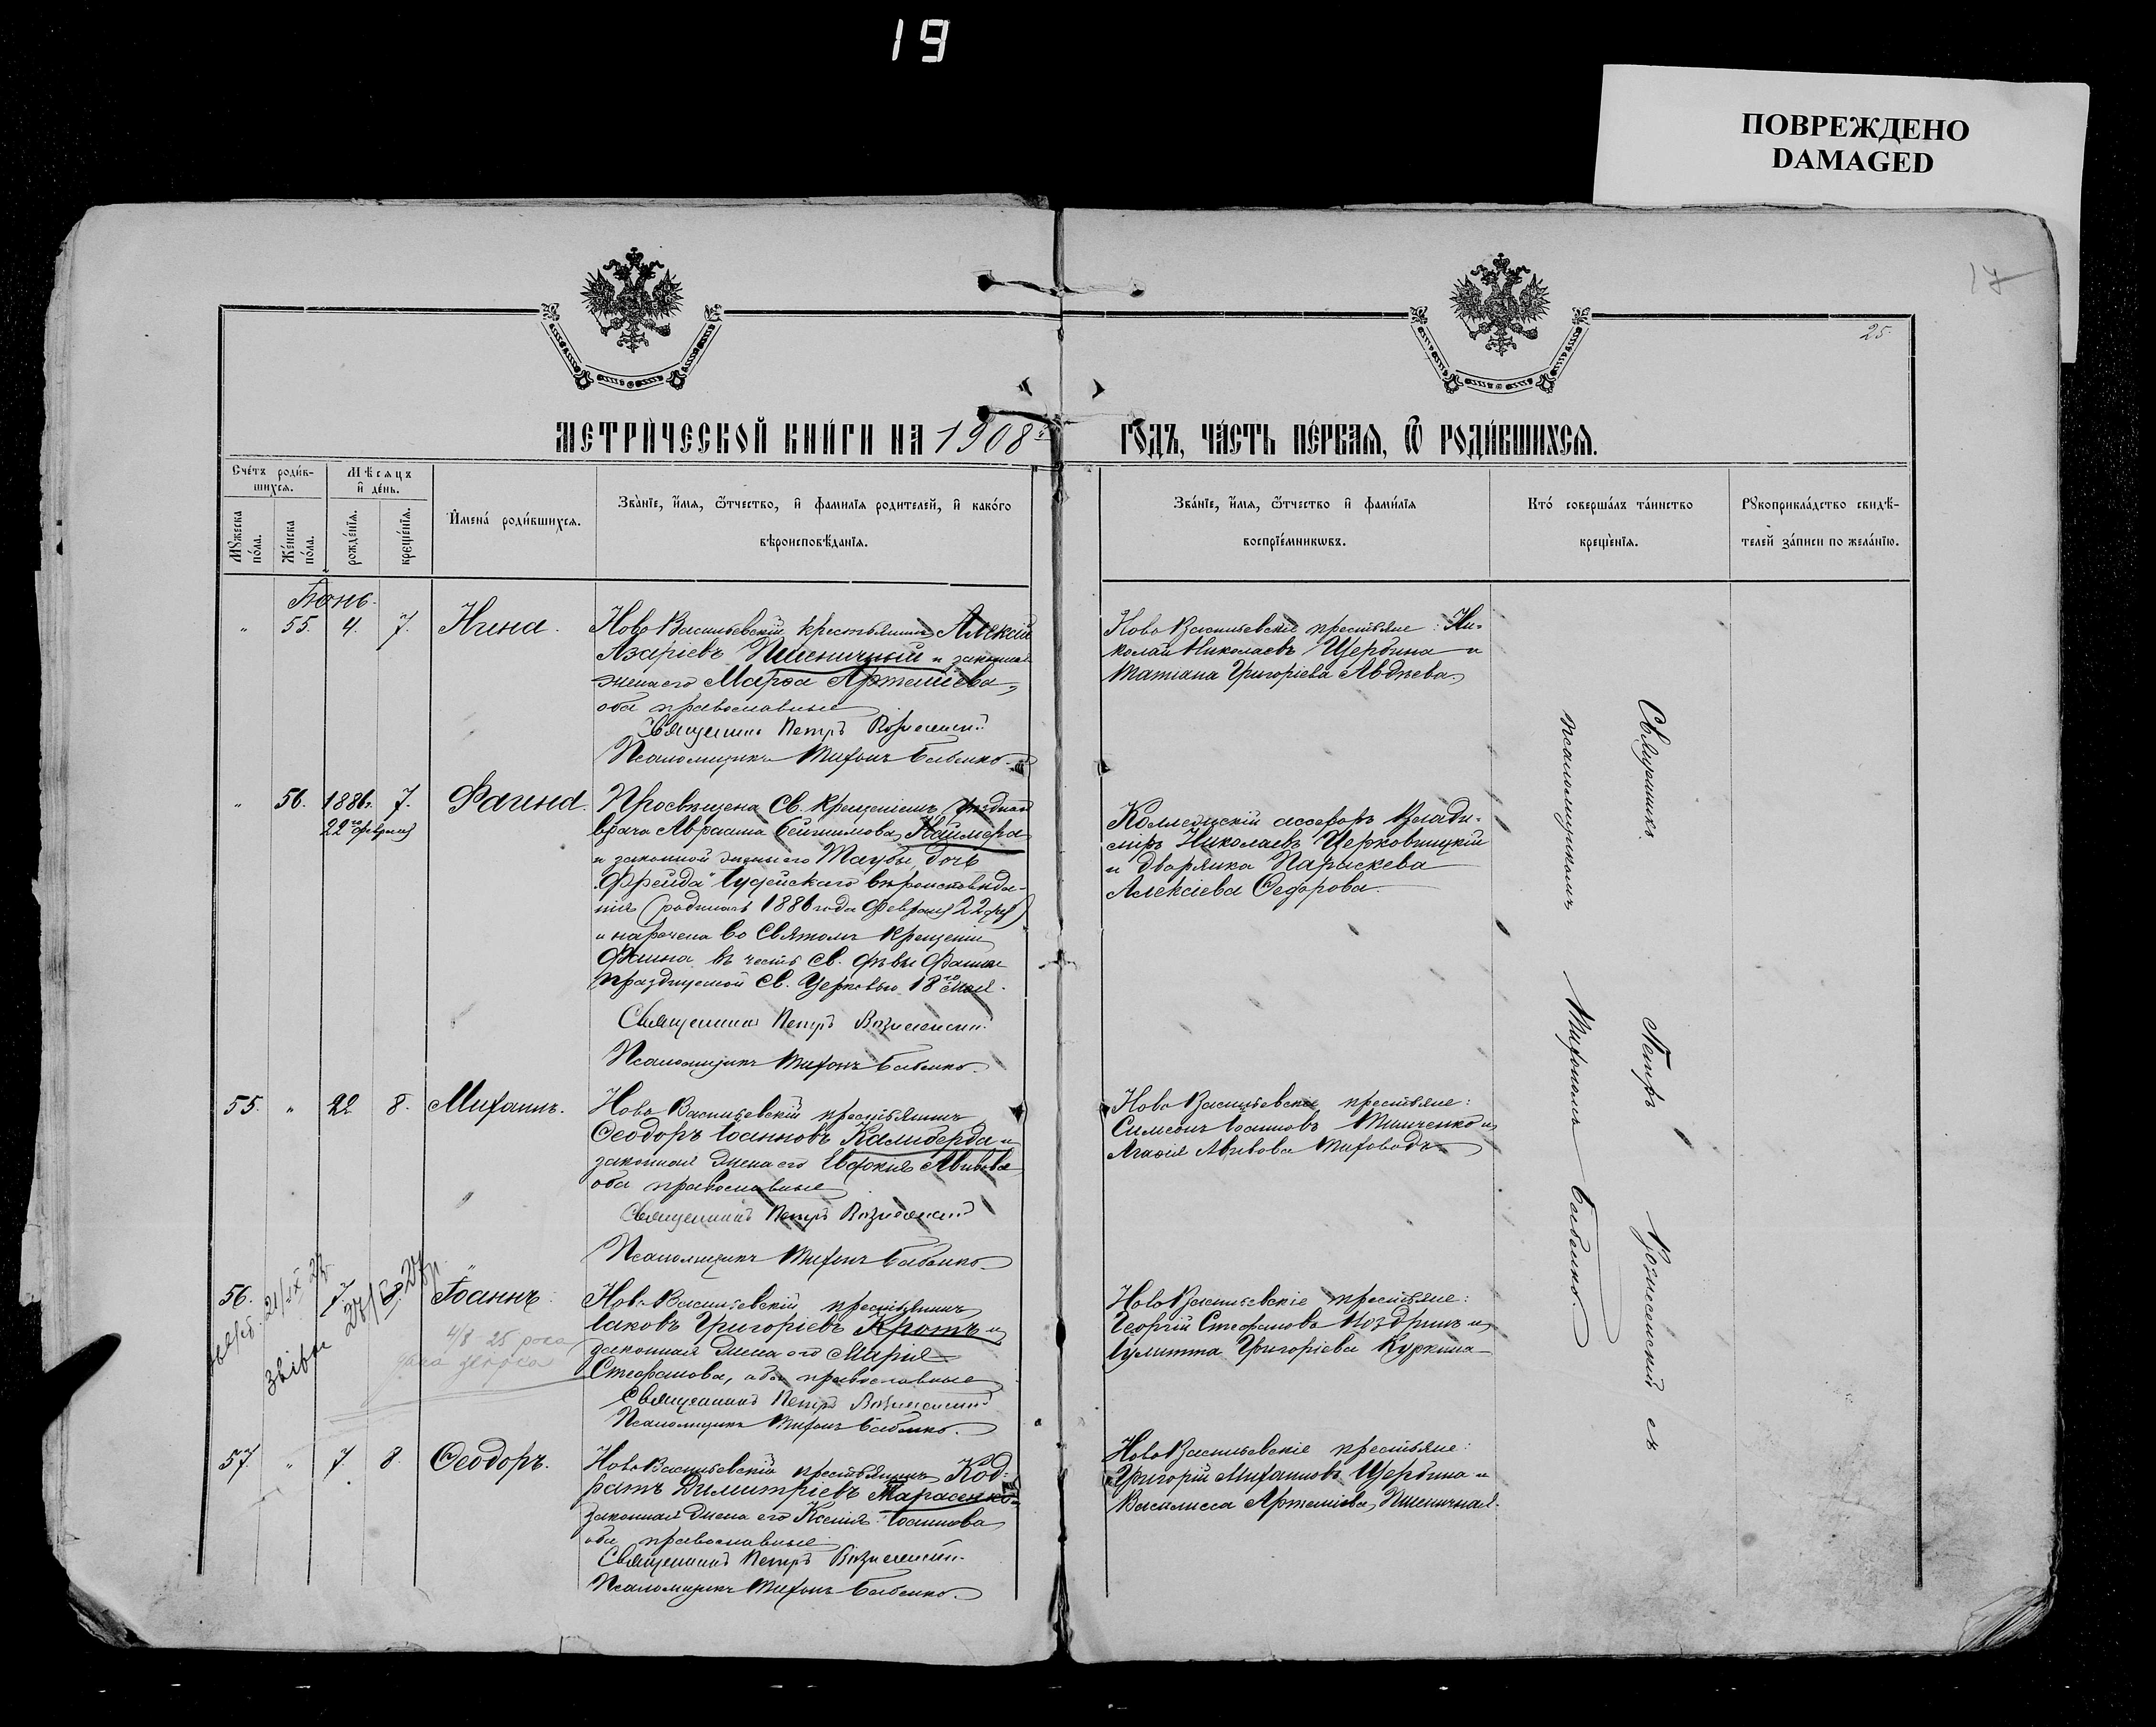 19
ПОВРЕЖДЕНО
DAMAGED
17
25
МЕТРИ́ЧЕСКОЙ КНИ́ГИ НА 1908 ГОДЪ, ЧА́СТЬ ПЕ́РВАЯ, Ѿ РОДИ́ВШИХСЯ.
Сче́тъ роди́в-
шихся.
Мѣ́сяцъ
и҆ де́нь.
И҆мена́ роди́вшихся.
Зва́нїе, и҆́мя, ѻ҆́тчество, и҆ фами́лїя роди́телей, и҆ како́го
вѣроисповѣ́данїя.
Мꙋ́жеска
по́ла.
Же́нска
по́ла.
рожде́нїя.
креще́нїя.
Зва́нїе, и҆́мя, ѻ҆́тчество и҆ фами́лїя
воспрїе́мникѡвъ.
Кто́ соверша́лъ та́инство
креще́нїя.
Рꙋкоприкла́дство свидѣ́-
телей за́писи по жела́нїю.
Іюнь.
" 55. 4. 7. Нина.
Ново Васильевскій крестьянинъ Алексій
Азаріевъ Пшеничный и законная
жена его Марѳа Артеміева,
оба православные
Священникъ Петръ Вознесенскій
Псаломщикъ Тихонъ Бабенко
Ново Васильевскіе крестьяне: Ни-
колай Николаевъ Щербина и
Татіана Григоріева Авдѣева
" 56. 1886г. 22го февраля 7. Фаина.
Просвѣщена Св. Крещеніемъ
врача Авраама Каймера
и законной жены его Таубы дочь
"Фрейда" Іудейскаго вѣроисповѣда-
нія (родилась 1886 года Февраля 22 дня)
и наречена во Святомъ Крещеніи
Фаина въ честь Св. дѣвы Фаины
празднуемой Св. Церковью 18го мая.
Священникъ Петръ Вознесенскій
Псаломщикъ Тихонъ Бабенко
Коллежскій ассесоръ Влади-
міръ Николаевъ Церковницкій
и дворянка Параскева
Алексіева Ѳедорова.
55. " 22 8. Михаилъ.
Ново Васильевскій крестьянинъ
Ѳеодоръ Іоанновъ Калиберда и
законная жена его Евдокія
оба православные
Священникъ Петръ Вознесенскій
Псаломщикъ Тихонъ Бабенко
Ново Васильевскіе крестьяне:
Симеонъ Іоанновъ и
Агаѳія
56. 7 8. Іоаннъ.
Ново Васильевскій крестьянинъ
Іаковъ Григоріевъ Кротъ и
законная жена его Марія
Стефанова, оба православные
Священникъ Петръ Вознесенскій
Псаломщикъ Тихонъ Бабенко.
Ново Васильевскіе крестьяне:
Георгій Стефановъ Ноздринъ и
Іулитта Григоріева Куркина
4/8 25 рока
57. " 7 8. Ѳеодоръ.
Ново Васильевскій крестьянинъ Код-
ратъ Димитріевъ Тарасенко
законная жена его Ксенія Іоаннова
оба православные
Священникъ Петръ Вознесенскій
Псаломщикъ Тихонъ Бабенко.
Ново Васильевскіе крестьяне:
Григорій Михаиловъ Щербина и
Василисса Артеміева Пшеничная.
Священникъ Петръ Вознесенскій съ
псаломщикомъ Тихономъ Бабенко.